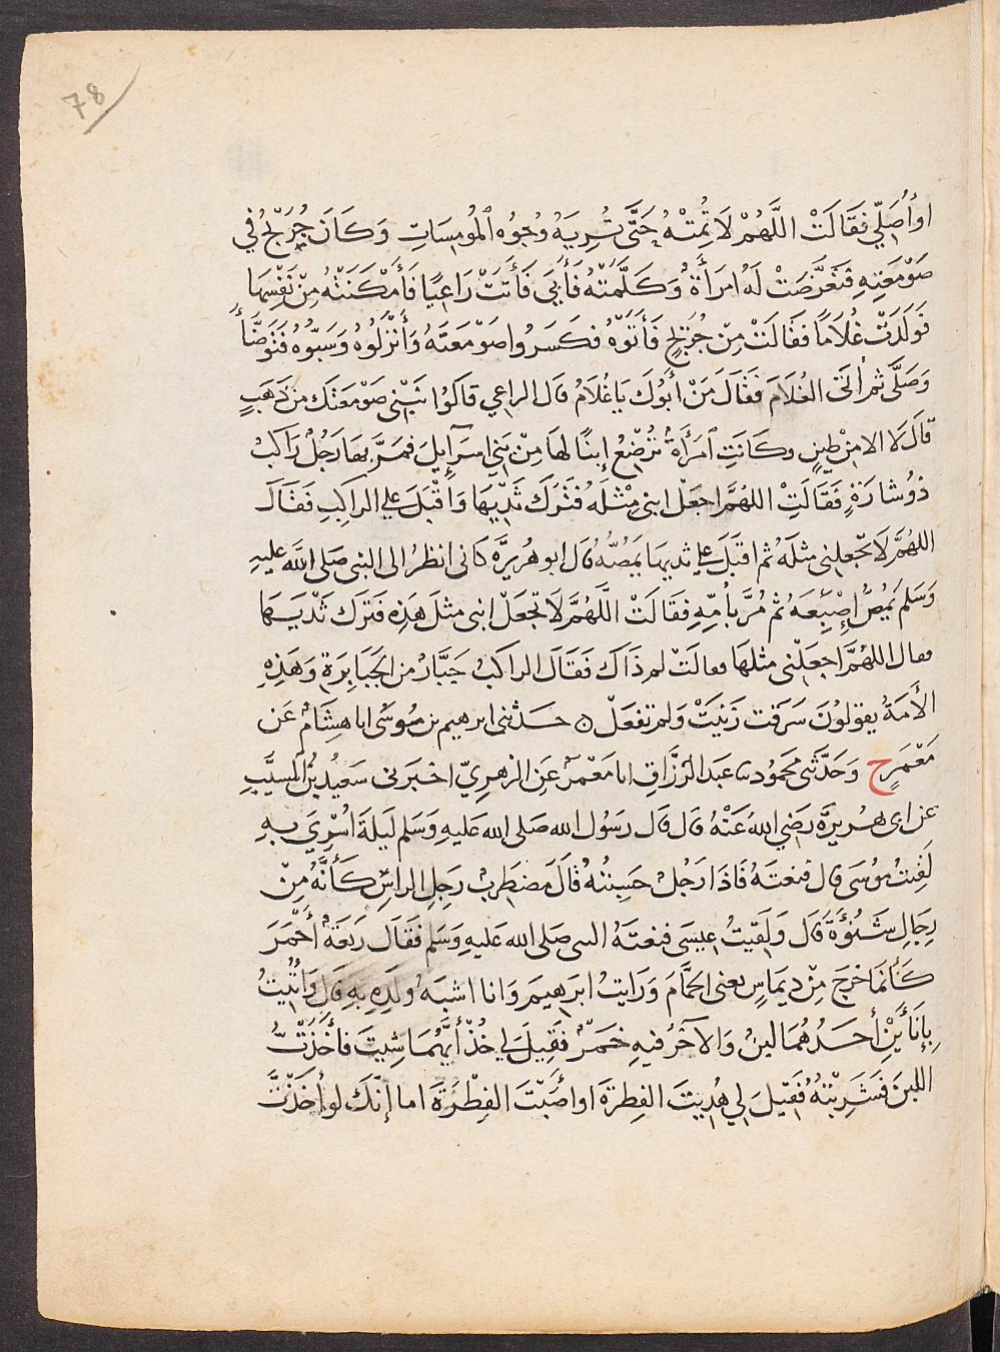 78
اوأُصَلِّي فَقَالَتْ اللَّهُمَّ لَا تُمِتْهُ حَتَّى تُرِيَهُ وُجُوهَ ٱلْمُومِسَاتِ وَكَانَ جُرَيْجٌ فِي
صَوْمَعَتِهِ فَتَعَرَّضَتْ لَهُ امْرَأَةٌ وَكَلَّمَتْهُ فَأَبَى فَأَتَتْ رَاعِيًا فَأَمْكَنَتْهُ مِنْ نَفْسِهَا
فَوَلَدَتْ غُلَامًا فَقَالَتْ مِنْ جُرَيْجٍ فَأَتَوْهُ فَكَسَرُوا صَوْمَعَتَهُ وَأَنْزَلُوهُ وَسَبُّوهُ فَتَوَضَّأَ
وَصَلَّى ثم أتَى الغُلَامَ فَقَالَ مَنْ أَبُوكَ يَا غُلَامُ قال الراعي قالُوا نَبْنِي صَوْمَعَتَكَ من ذَهَبٍ
قَالَ لَا الا مِنْ طِينٍ وكَانَتِ ٱمْرَأَةٌ تُرْضِعُ إبنًا لهَا مِنْ بَنِي اسرَآئِيلَ فمَرَّ بهَا رَجُلٌ رَاكبٌ
ذُو شَارَةٍ فَقَالَتْ اللهُمَّ اجعَلْ ابنى مِثْلَهُ فَتَرَكَ ثَدْيَهَا وَاقْبَلَ على الراكِبِ فَقَالَ
اللهُمَّ لَا تجعلنى مثلَهُ ثم اقبَلَ على ثديها يَمُصُّهُ قال ابو هُريرَة كانى انظرُ الى النبى صَلى الله عليهِ
وَسَلم يَمُصُّ إِصْبَعَهُ ثم مُرَّ بأَمَةٍ فقَالَتْ اللَّهُمَّ لَا تَجْعَلْ ابنى مثلَ هَذِهِ فَتَركَ ثَدْيَهَا
فقال اللهُمَّ اجعَلْنى مثلهَا فقالتْ لم ذَاكَ فَقَالَ الراكبُ جَبَّارٌ من الجَبَابِرَةِ وَهَذِهِ
الأَمَةُ يقولُونَ سَرَقت زَنَيَتْ وَلم تفعَلْ ۞ حَدثنى ابرهيم بن مُوسَى انا هِشَامٌ عَن
مَعْمَرٍ ح وَحَدَّثَنى محمُود نا عَبد الرَزَّاقِ انا مَعْمَرٌ عَنِ الزهرِيّ اخبَرنى سَعيدُ بنُ المسَيَّبِ
عن ابى هُريرَة رَضي اللهُ عَنْهُ قال قال رَسُول الله صَلى الله عَليهِ وَسَلم لَيلةَ اُسْرِيَ بِهِ
لَقِيتُ مُوسَى قال فنعَتَهُ فَاذَا رَجُلٌ حَسِبْتُهُ قَالَ مُضطَرِبٌ رَجِلِ الراسِ كَأَنَّهُ مِنْ
رِجَالِ شَنُوءَةَ قال وَلَقيتُ عيسَى فنعَتَهُ النبى صَلى الله عَليهِ وَسَلم فقَال رَبعَةٌ أَحْمَرَ
كَأنمَا خرَجَ مِنْ ديمَاسٍ يعنى الحَمَّامَ وَرَايتُ ابرَهيمَ وَانا اشبَهُ وُلدِهِ بِهِ قَال وَاُتِيتُ
بِإِنَاءَيْنِ أَحَدُهُمَا لبنٌ وَالآخَرُ فيهِ خمرٌ فَقِيلَ لي خُذْ أَيَّهُمَا شِيتَ فأَخَذْتُ
اللبنَ فَشَرِبْتُهُ فَقيلَ لِي هُدِيتَ الفِطرَةَ او اصَبْتَ الفِطْرَةَ اما إنَّكَ لو أَخَذْتَ